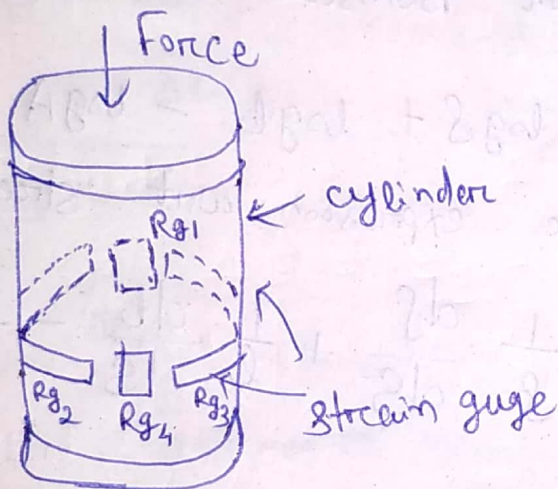 Force
cylinder
Rg1
Rg2
Rg4
Rg3
strain guge